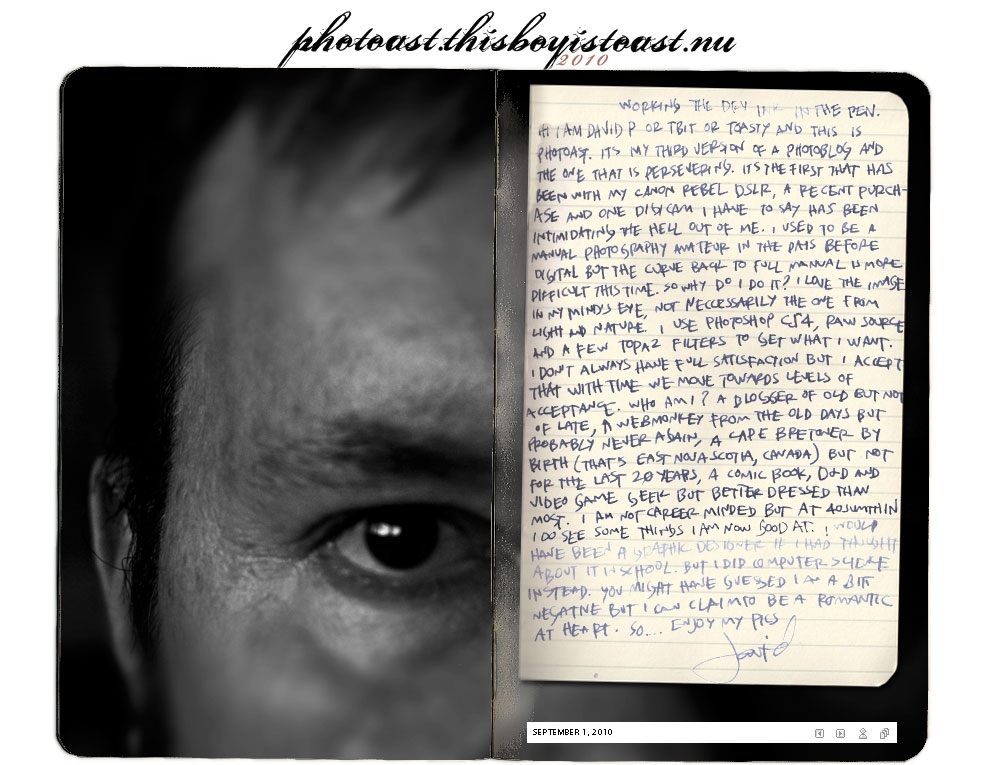 photoast.thisboyistoast.nu
2010
WORKING THE DRY INK IN THE PEN.
HI I AM DAVID P OR TBIT OR TOASTY AND THIS IS
PHOTOAST. ITS MY THIRD VERSION OF A PHOTOBLOG AND
THE ONE THAT IS PERSEVERING. ITS THE FIRST THAT HAS
BEEN WITH MY CANON REBEL DSLR, A RECENT PURCH-
ASE AND ONE DIGICAM I HAVE TO SAY HAS BEEN
INTIMIDATING THE HELL OUT OF ME. I USED TO BE A
MANUAL PHOTOGRAPHY AMATEUR IN THE DAYS BEFORE
DIGITAL BUT THE CURVE BACK TO FULL MANUAL IS MORE
DIFFICULT THIS TIME. SO WHY DO I DO IT? I LOVE THE IMAGE
IN MY MIND'S EYE, NOT NECCESSARILY THE ONE FROM
LIGHT AND NATURE. I USE PHOTOSHOP CS4, RAW SOURCE
AND A FEW TOPAZ FILTERS TO GET WHAT I WANT.
I DON'T ALWAYS HAVE FULL SATISFACTION BUT I ACCEPT
THAT WITH TIME WE MOVE TOWARDS LEVELS OF
ACCEPTANCE. WHO AM I? A BLOGGER OF OLD BUT NOT
OF LATE, A WEBMONKEY FROM THE OLD DAYS BUT
PROBABLY NEVER AGAIN, A CAPE BRETONER BY
BIRTH (THAT'S EAST NOVA SCOTIA, CANADA) BUT NOT
FOR THE LAST 20 YEARS, A COMIC BOOK, D+D AND
VIDEO GAME GEEK BUT BETTER DRESSED THAN
MOST. I AM NOT CAREER MINDED BUT AT 40SUMTHIN
I DO SEE SOME THINGS I AM NOW GOOD AT. I WOULD
HAVE BEEN A GRAPHIC DESIGNER IF I HAD THOUGHT
ABOUT IT IN SCHOOL. BUT I DID COMPUTER SCIENCE
INSTEAD. YOU MIGHT HAVE GUESSED I AM A BIT
NEGATIVE BUT I CAN CLAIM TO BE A ROMANTIC
AT HEART. SO... ENJOY MY PICS
David
SEPTEMBER 1, 2010